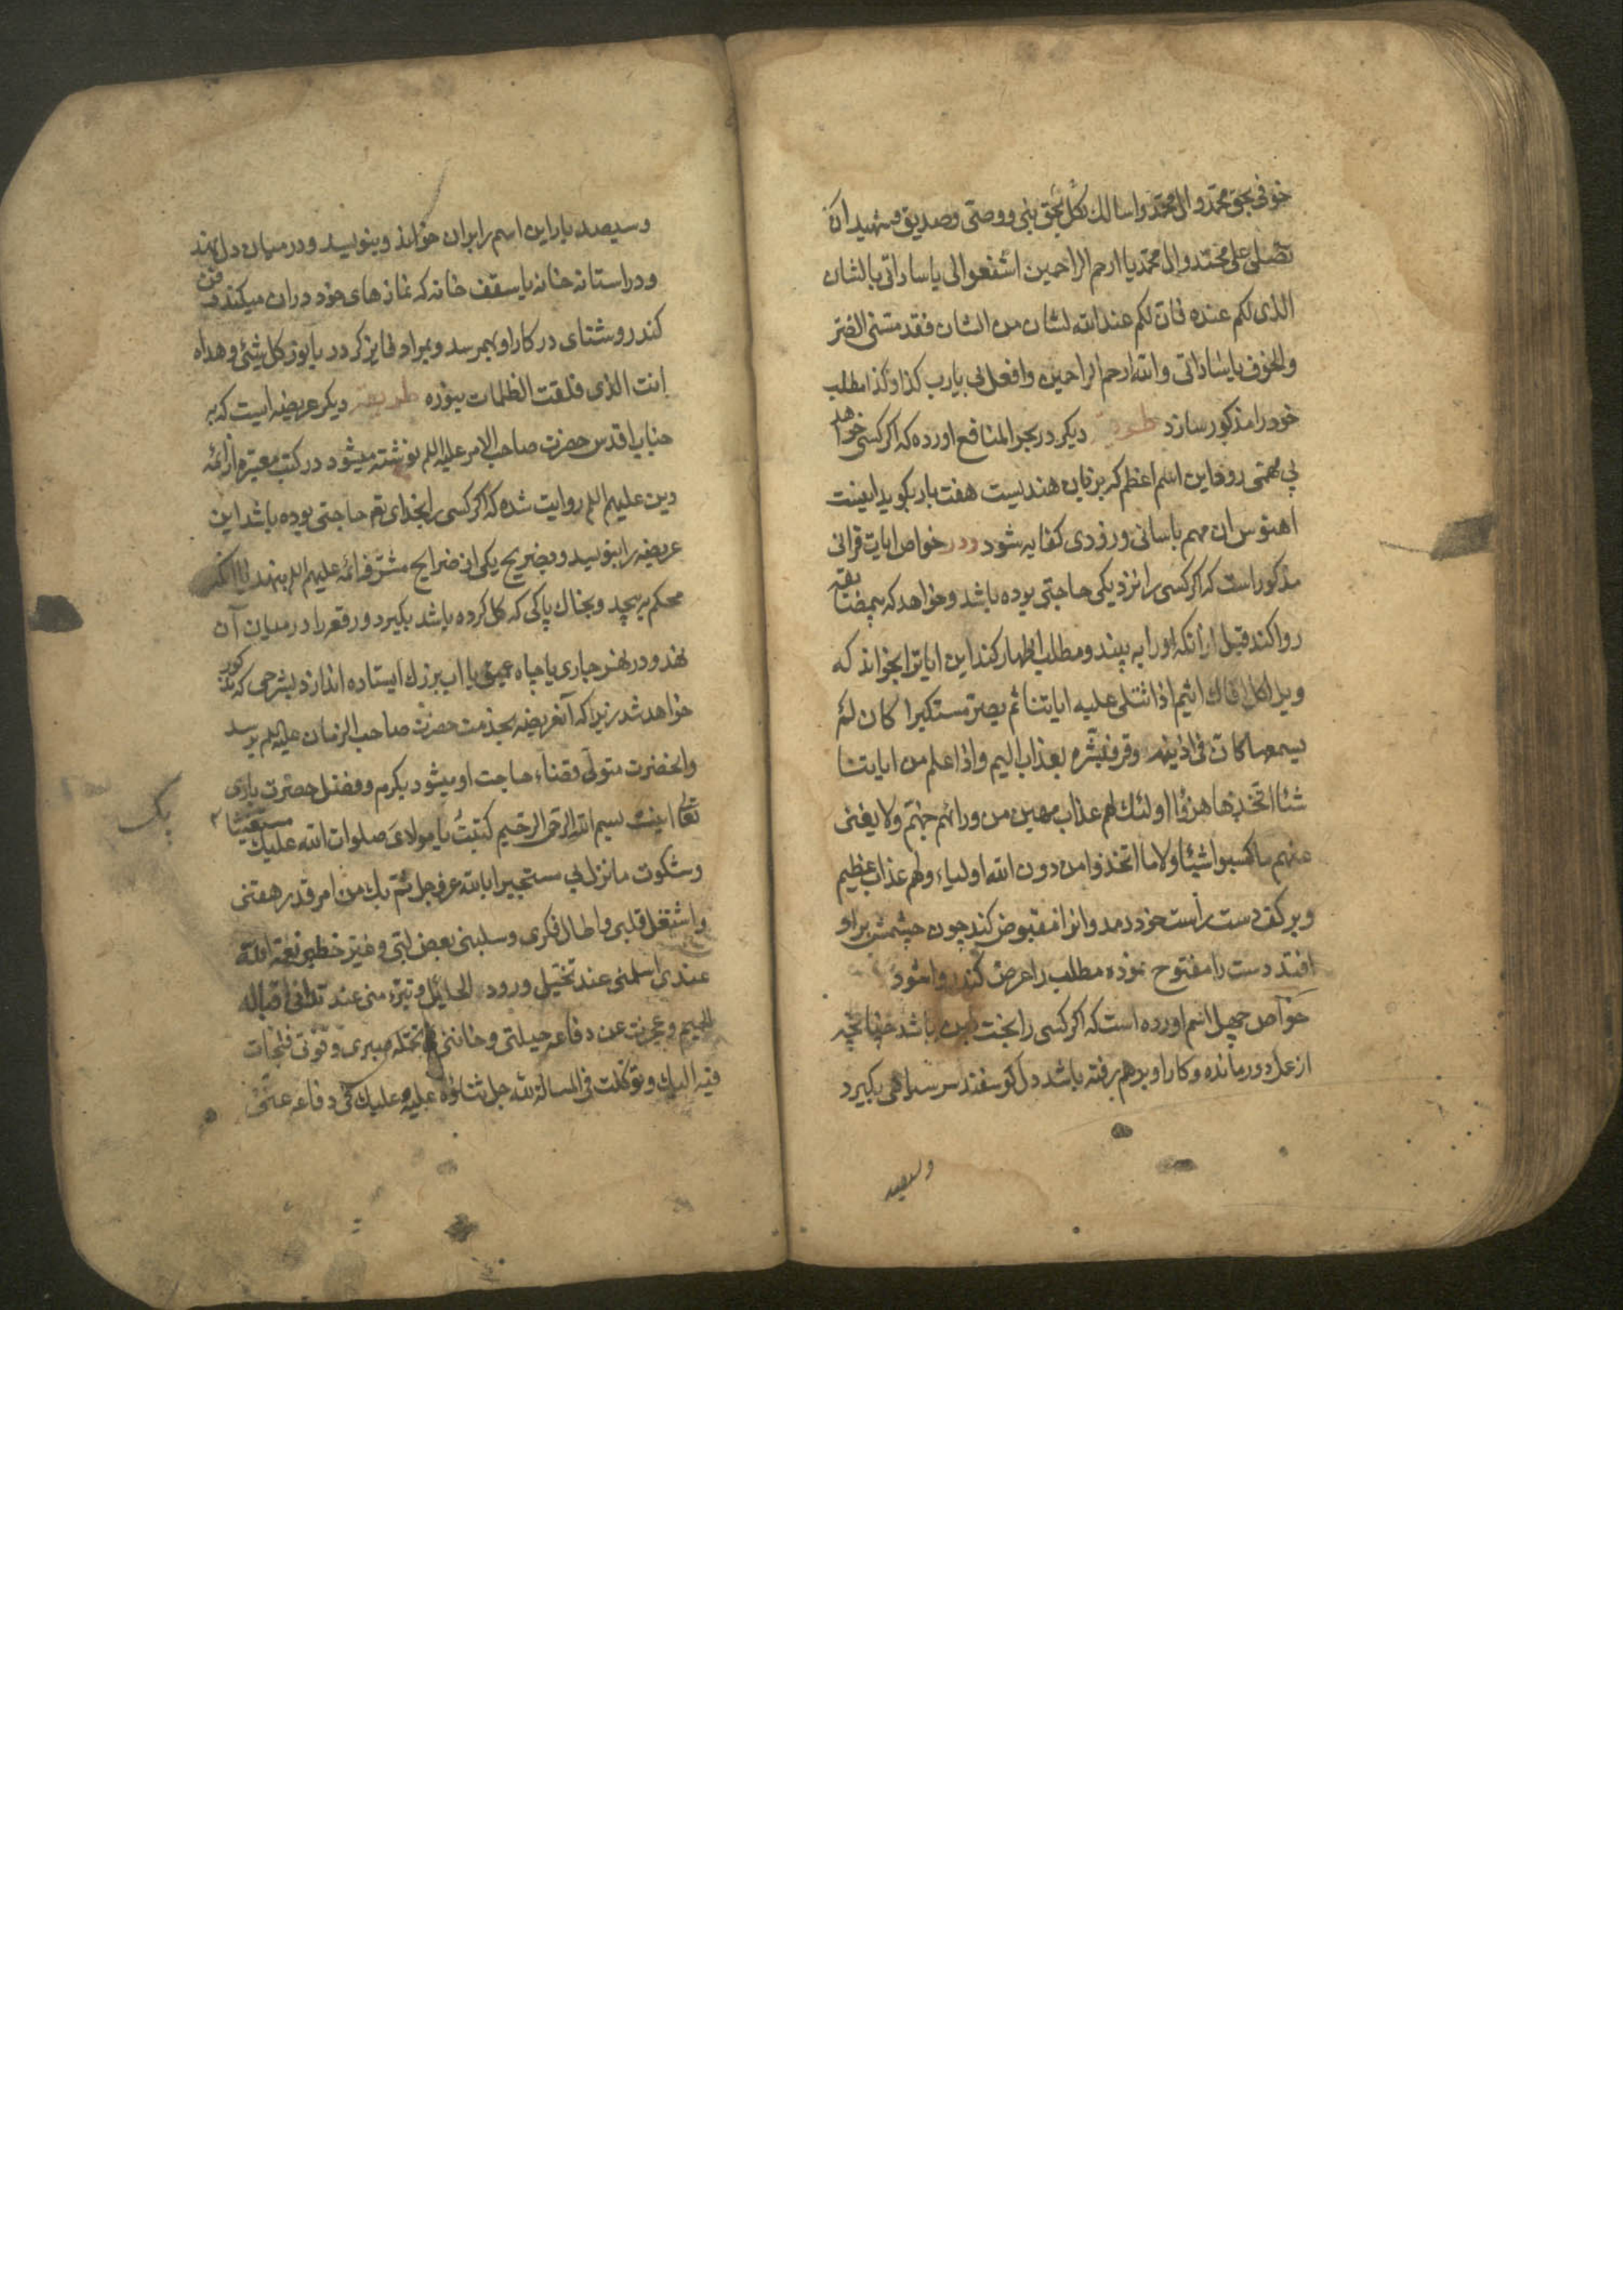 خوفی بحق محمد وال محمد واسالك بكل بحق بنی ووصی وصدیق وشهید ان
تصلی علی محمد وال محمد یا ارحم الراحمین اشفعوا لی یا ساداتی بالشان
الذی لکم عنده فان لکم عند الله لشان من الشان فقد مسنی الضر
والخوف یا ساداتی والله ارحم الراحمین وافعل بی یا رب کذا وکذا مطلب
خود را مذکور سازد طریقه دیکر در بحر المنافع اورده که اکر کسی خواهد
پی مهمی رود این اسم اعظم که بزبان هندیست هفت بار بکوید اینست
اهنوس ان مهم باسانی وزودی کفایه شود ودر خواص ایات قرانی
مذکور است که اکر کسی را نزدیکی حاجتی بوده باشد وخواهد که
روا کند قبل از انکه اورا به بیند ومطلب اظهار کند این ایاترا بخواند که
ویل لکل افاك اثیم اذا تتلی علیه ایاتنا ثم یصر مستکبرا کان لم
یسمعها کان فی اذنیه وقر فبشره بعذاب الیم واذا علم من ایاتنا
شئا اتخذها هزوا اولئك لهم عذاب مهین من ورائهم جهنم ولا یغنی
عنهم ما کسبوا شیئا ولا ما اتخذوا من دون الله اولیاء ولهم عذاب عظیم
وبر کف دست راست خود دمد وانرا مقبوض کند چون چشمش براو
افتد دست را مفتوح نموده مطلب را عرض کند روا شود
خواص چهل اسم اورده است که اکر کسی را بخت باشد چنانچه
از عمل دور مانده وکار او برهم رفته باشد دل کوسفند سر سیاهی بکیرد
وسیصد
وسیصد بار این اسم را بران خواند وبنویسد ودر میان دل نهد
ودر استانه خانه یا سقف خانه که نمازهای خود دران میکند دفن
کند روشنای در کار او بهم رسد وبمراد فایز کردد یا نور کل شیئ وهداه
انت الذی فلقت الظلمات بنوره طریقه دیکر عریضه ایست که به
جناب اقدس حضرت صاحب الامر علیه السلام نوشته میشود در کتب معتبره از ائمه
دین علیهم السلام روایت شده که اکر کسی را بخدای تع حاجتی بوده باشد این
عریضه را بنویسد وبضریح یکی از ضرایح مشرفه ائمه علیهم السلام بنهد
محکم به پیچد وبخاك پاکی که کل کرده باشد بکیرد ورقعه را در میان آن
نهد ودر نهر جاری یا چاه عمیق یا اب بزرك ایستاده اندازد بشرحی که مذکور
خواهد شد زیرا که آنعریضه بخدمت حضرت صاحب الزمان علیه السلام میرسد
وانحضرت متولی قضاء حاجت او میشود بکرم وفضل حضرت باری
تعالی اینست بسم الله الرحمن الرحیم کتبت یا مولای صلوات الله علیك مستغیثا
وشکوت ما نزل بی مستجیرا بالله عز وجل ثم بك من امر قد دهمنی
واشتغل قلبی واطال فکری وسلبنی بعض لبی وغیر خطیر نعمة الله
عندی اسلمنی عند تخیل وروده الخلیل وتبرء منی عند ترائی اقباله
الحمیم وعجزت عن دفاعه حیلتی وخاننی فی تحمله صبری وقوتی فلجات
فیه الیك وتوکلت فی المسالة لله جل ثناؤه علیه وعلیك فی دفاعه عنی